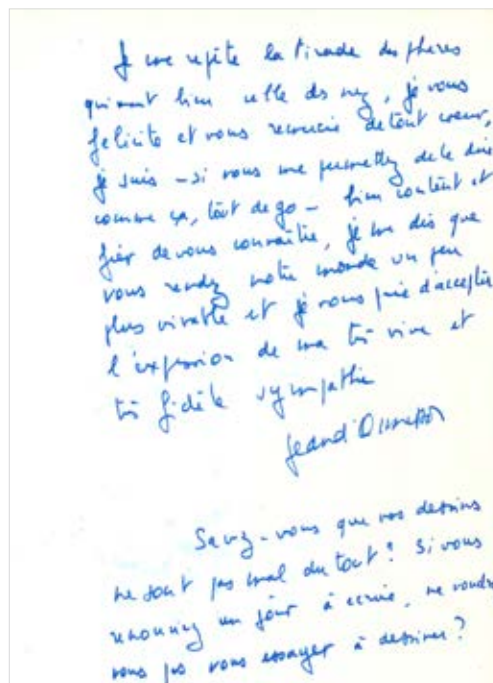 Je me répète la tirade des phères
qui vaut bien celle des nez, je vous
félicite et vous remercie de tout coeur,
je suis - si vous me permettez de le dire
comme ça, tout de go - bien content et
fier de vous connaître, je me dis que
vous rendez notre monde un peu
plus vivable et je vous prie d'accepter
l'expression de ma très vive et
très fidèle sympathie
Jean d'Ormesson
Savez-vous que vos dessins
ne sont pas mal du tout? Si vous
renoncez un jour à écrire, ne voudr
vous pas vous essayer à dessiner?